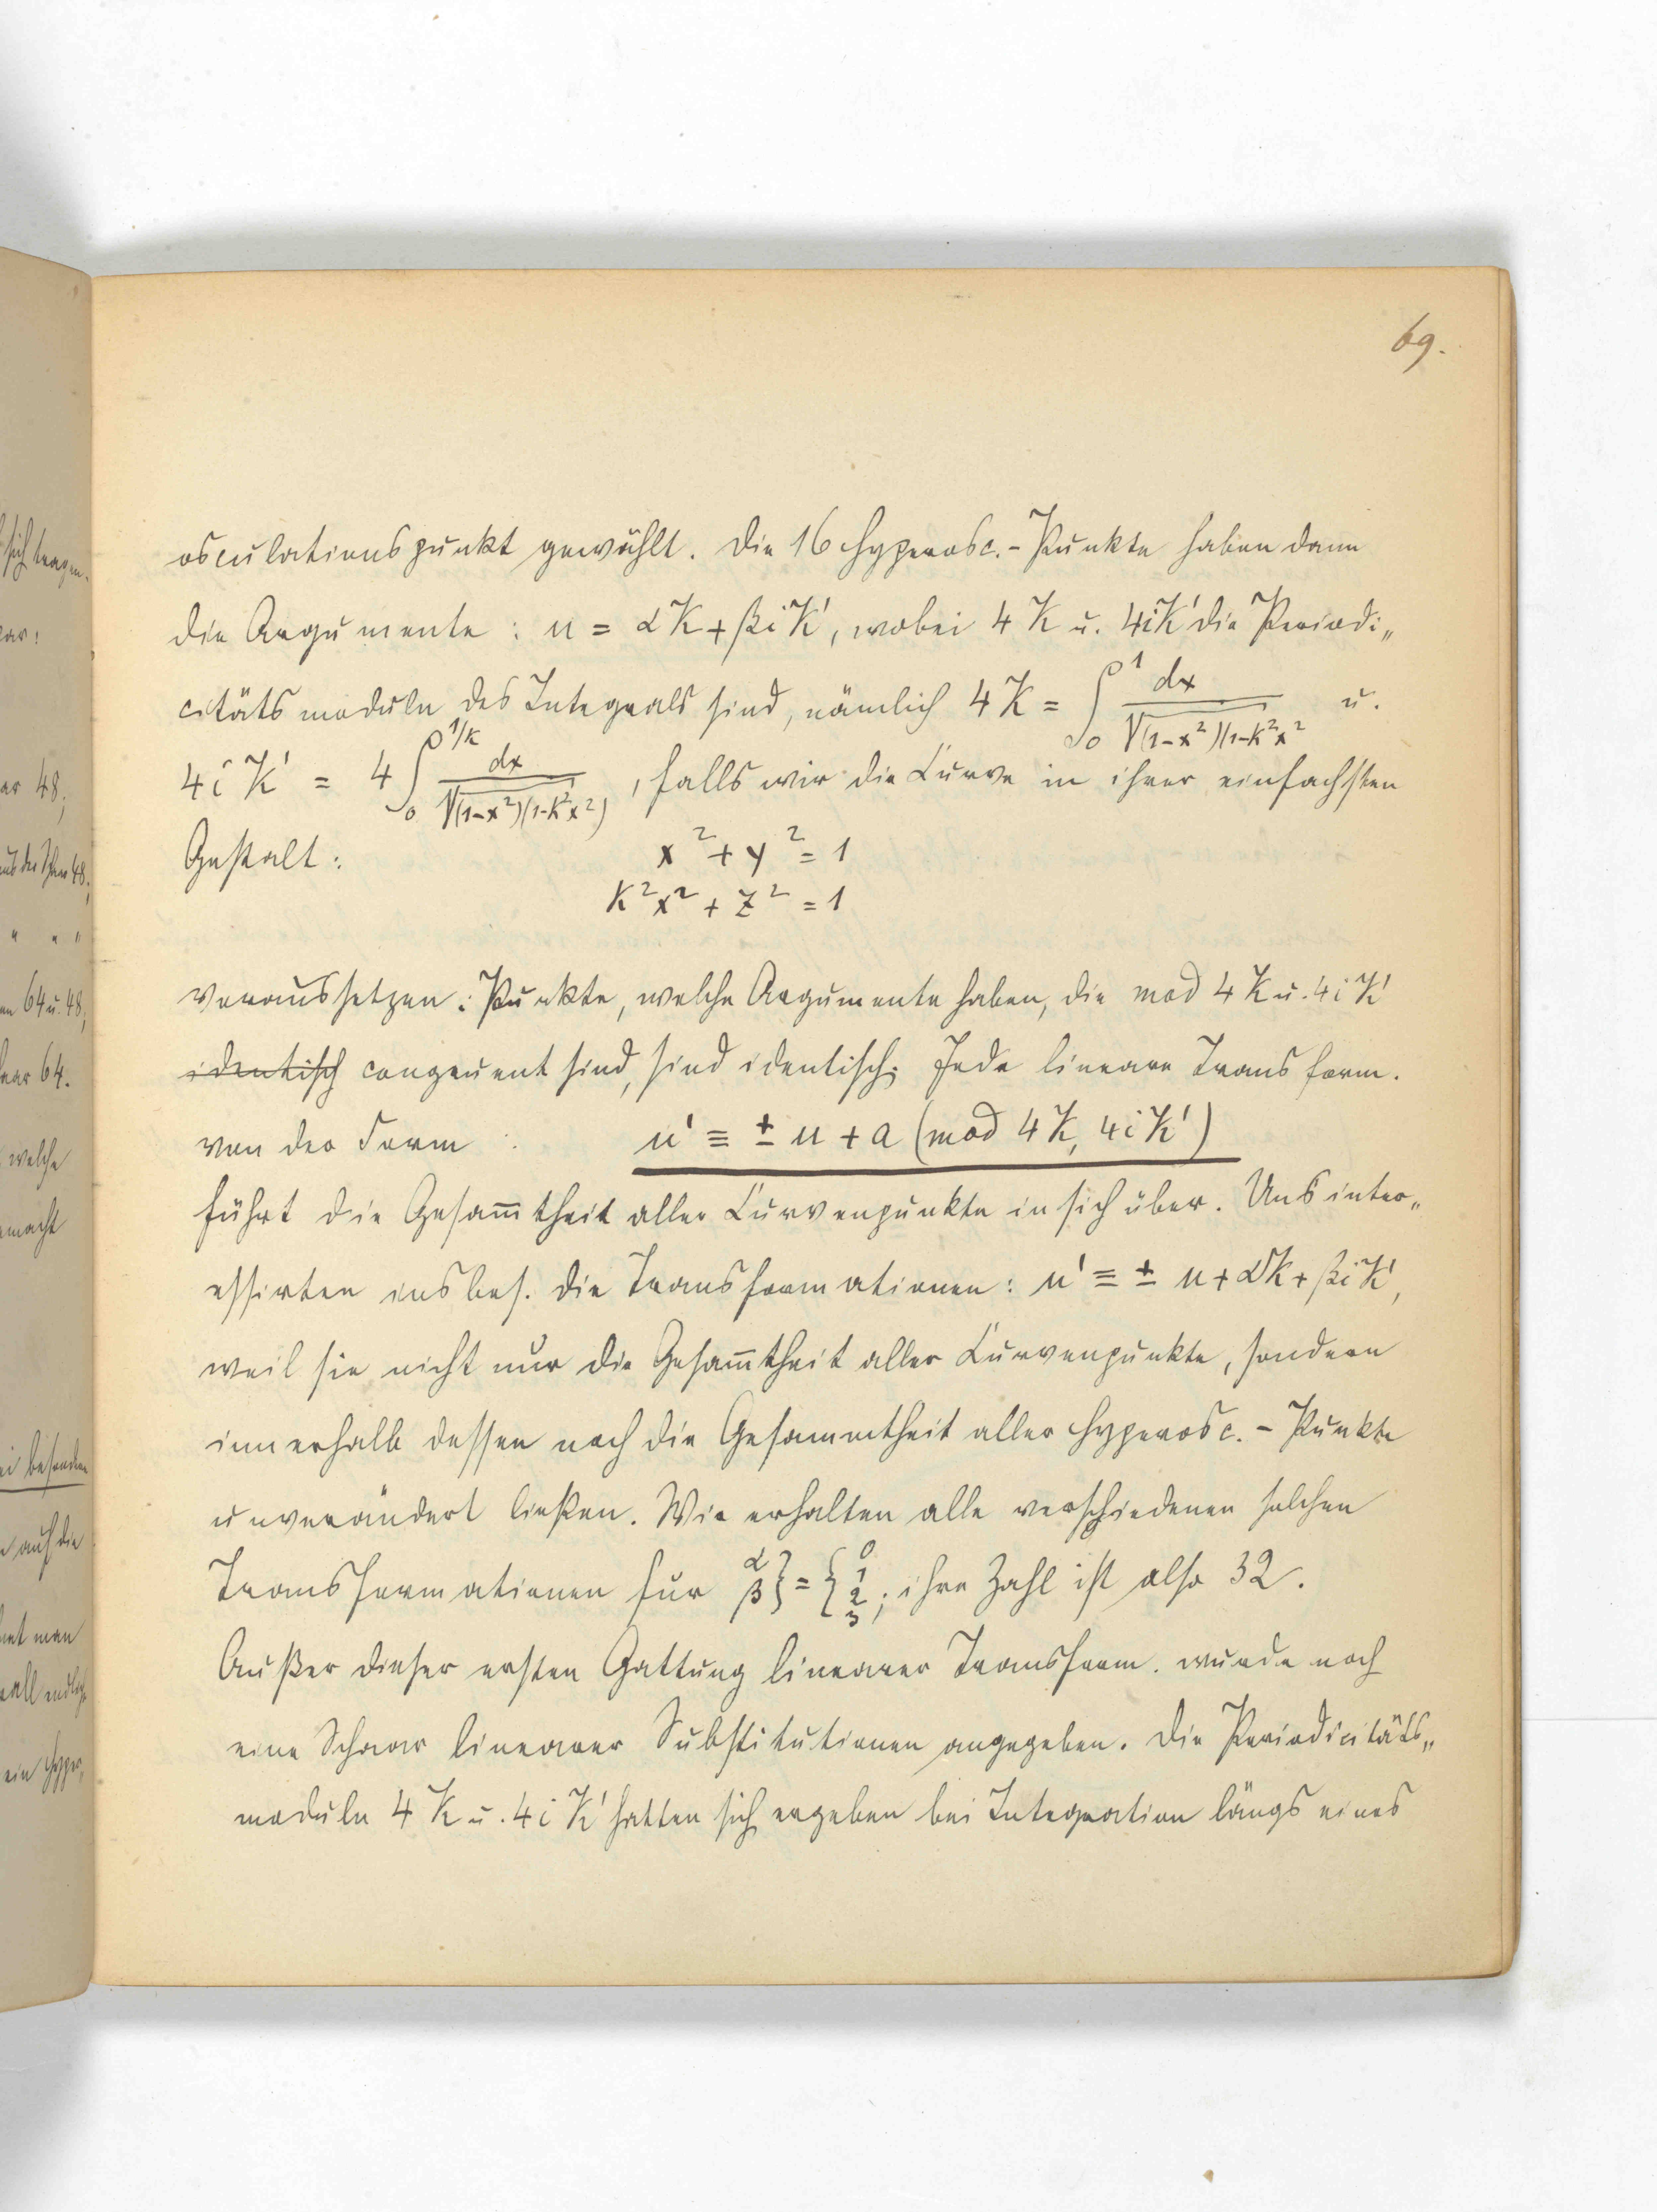 69.
osculationspunkt gewählt. Die 16 Hyperosc.-Punkte haben dann
die Argumente : u = αK + βiK', wobei 4K u. 4iK' die Periodi„
citätsmoduln des Integrals sind, nämlich 4K = ∫₀¹ dx / √(1-x²)(1-k²x² u.
4iK' = 4∫₀^{1/k} dx / √(1-x²)(1-k²x²) , falls wir die Curve in ihrer einfachsten
Gestalt : x² + y² = 1
k²x² + z² = 1
voraussetzen : Punkte, welche Argumente haben, die mod 4K u. 4iK'
identisch congruent sind, sind identisch. Jede lineare Transform.
von der Form : u' ≡ ± u + a (mod 4K, 4iK')
führt die Gesam̅theit aller Curvenpunkte in sich über. Uns inter„
essirten insbes. die Transformationen : u' ≡ ± u + αK + βiK',
weil sie nicht nur die Gesam̅theit aller Curvenpunkte, sondern
innerhalb dessen noch die Gesammtheit aller Hyperosc. - Punkte
unverändert ließen. Wir erhalten alle verschiedenen solchen
Transformationen für α β } = { 0 1 2 3 ; ihre Zahl ist also 32.
Außer dieser ersten Gattung linearer Transform. wurde noch
eine Schaar linearer Substitutionen angegeben. Die Periodicitäts„
moduln 4K u. 4iK' hatten sich ergeben bei Integration längs eines
sich tragen.
ar 48;
aus der Schaar 48;
" " "
en 64 u. 48;
aar 64.
welche
emacht
ei besondere
auf die
man
ein Hyper„